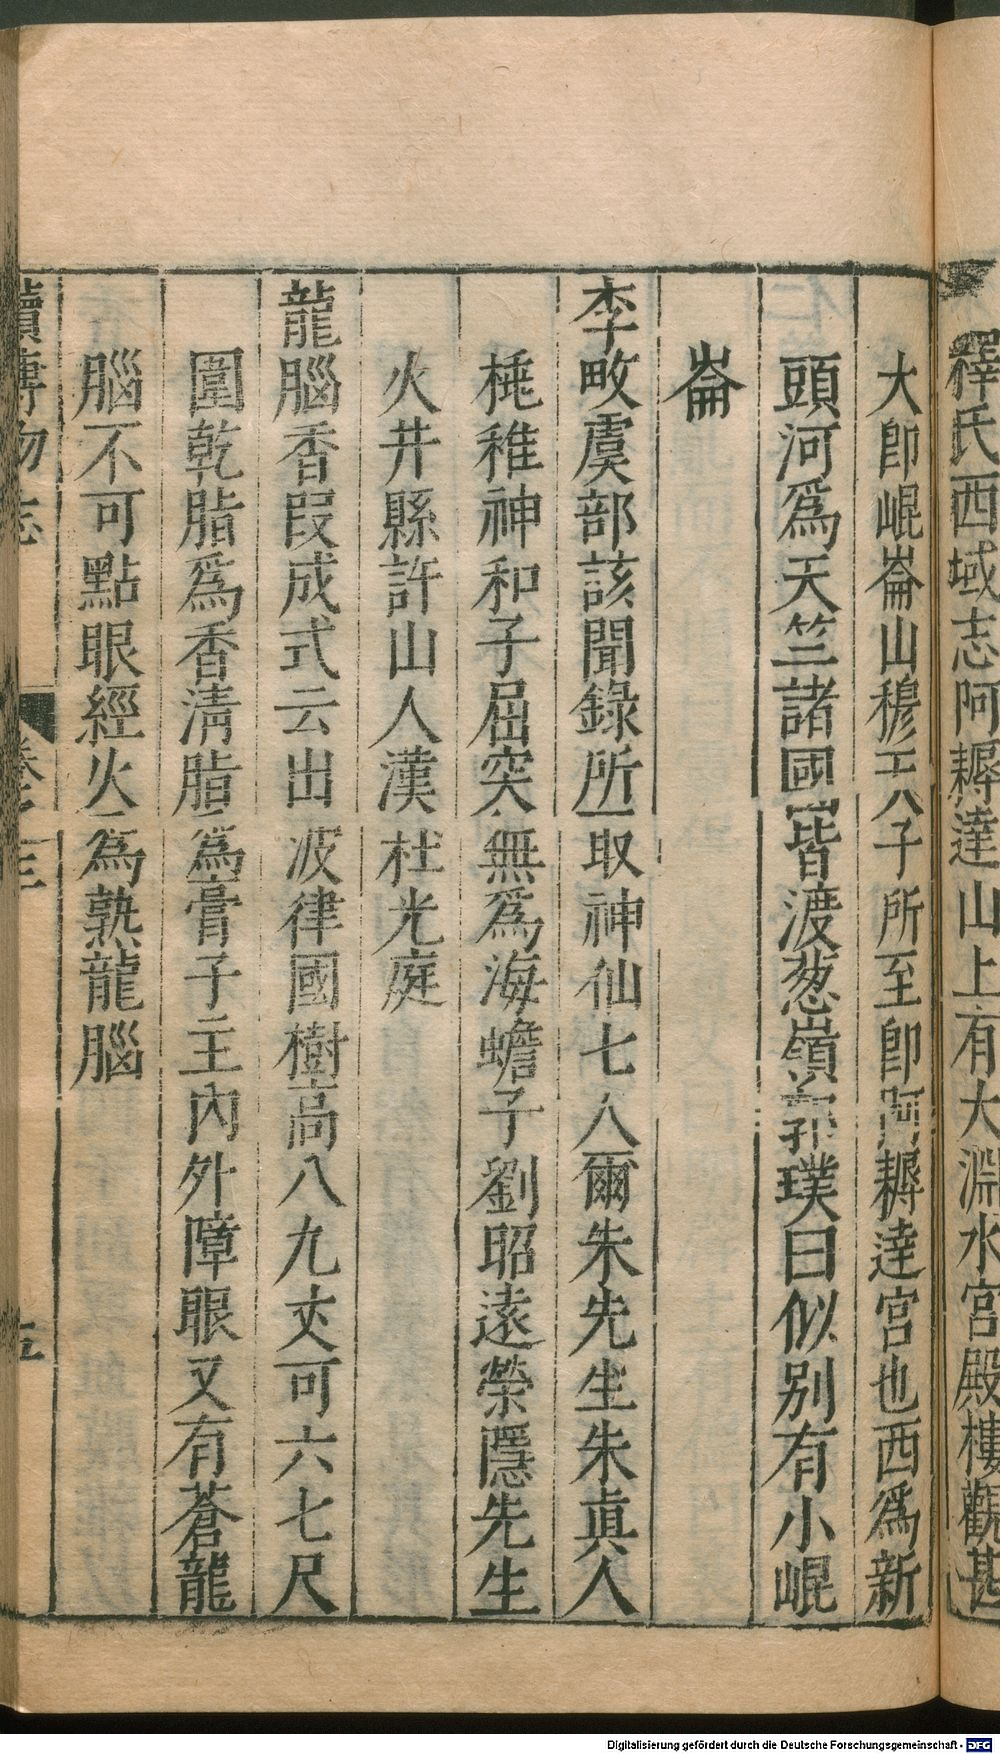 釋氏西域志阿耨達山上有大淵水宮殿樓觀甚
大卽崐崙山穆王八子所至卽阿耨達宮也西爲新
頭河爲天竺諸國皆渡葱嶺郭璞曰似別有小崐
崙
李畋虞部該聞錄所取神仙七人爾朱先生朱眞人
㧯稚神和子屈突無爲海蟾子劉昭遠榮隱先生
火井縣許山人漢杜光庭
龍腦香叚成式云出波律國樹高八九丈可六七尺
圍乾脂爲香淸脂爲膏子主內外障眼又有蒼龍
腦不可點眼經火爲熟龍腦
續博物志 卷之三 五
Digitalisierung gefördert durch die Deutsche Forschungsgemeinschaft - DFG